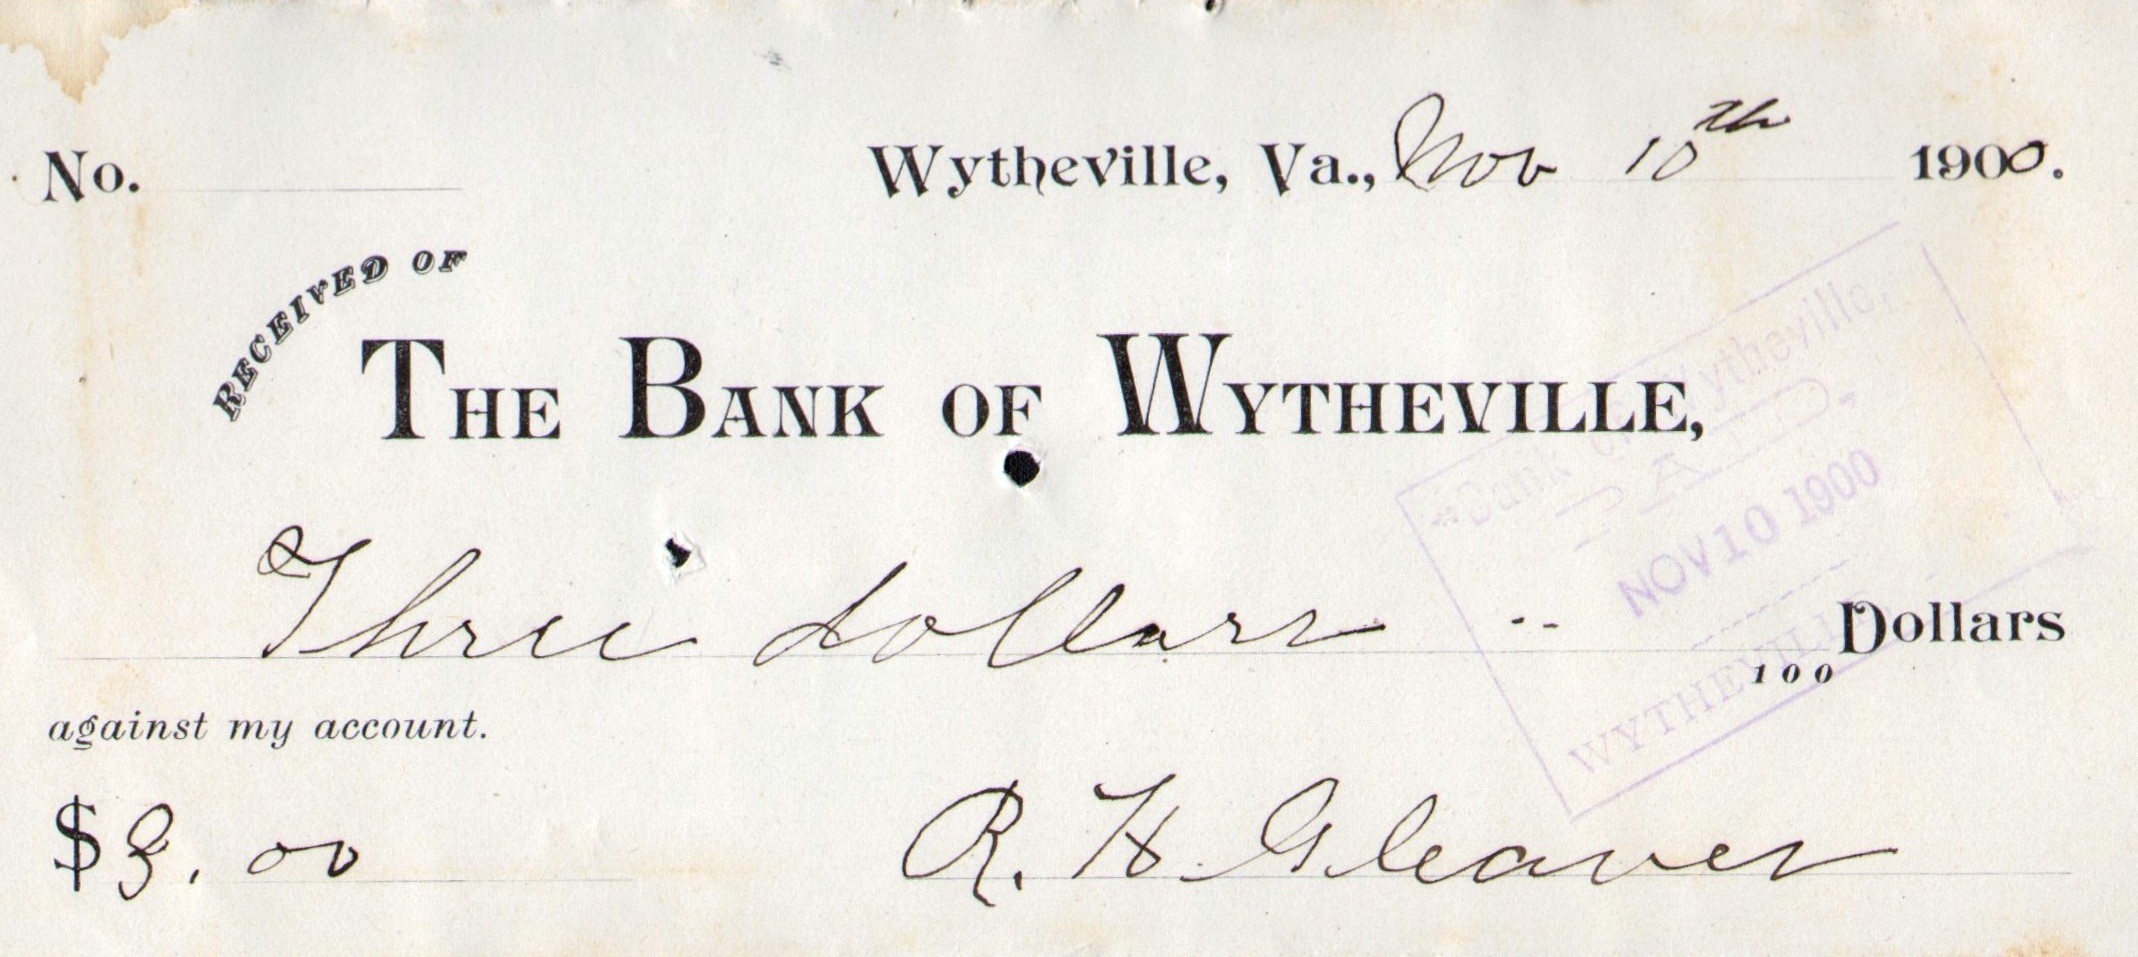 No. Wytheville, Va., Nov 10th 1900.
RECEIVED OF
THE BANK OF WYTHEVILLE,
"Bank of Wytheville,
PAID,
NOV 10 1900
Three dollars -- Dollars
100
WYTHEVILLE
against my account.
$3.00 R. H. Gleaves